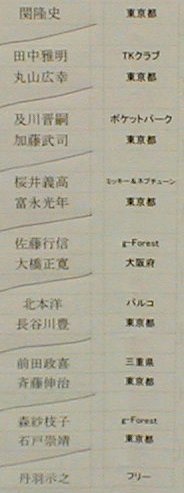 関隆史 東京都
田中雅明 TKクラブ
丸山広幸 東京都
及川晋嗣 ポケットパーク
加藤武司 東京都
桜井義高 ミッキー&ネプチューン
富永光年 東京都
佐藤行信 g-Forest
大橋正寛 大阪府
北本洋 パルコ
長谷川豊 東京都
前田政喜 三重県
斉藤伸治 東京都
森紗枝子 g-Forest
石戸崇靖 東京都
丹羽示之 フリー